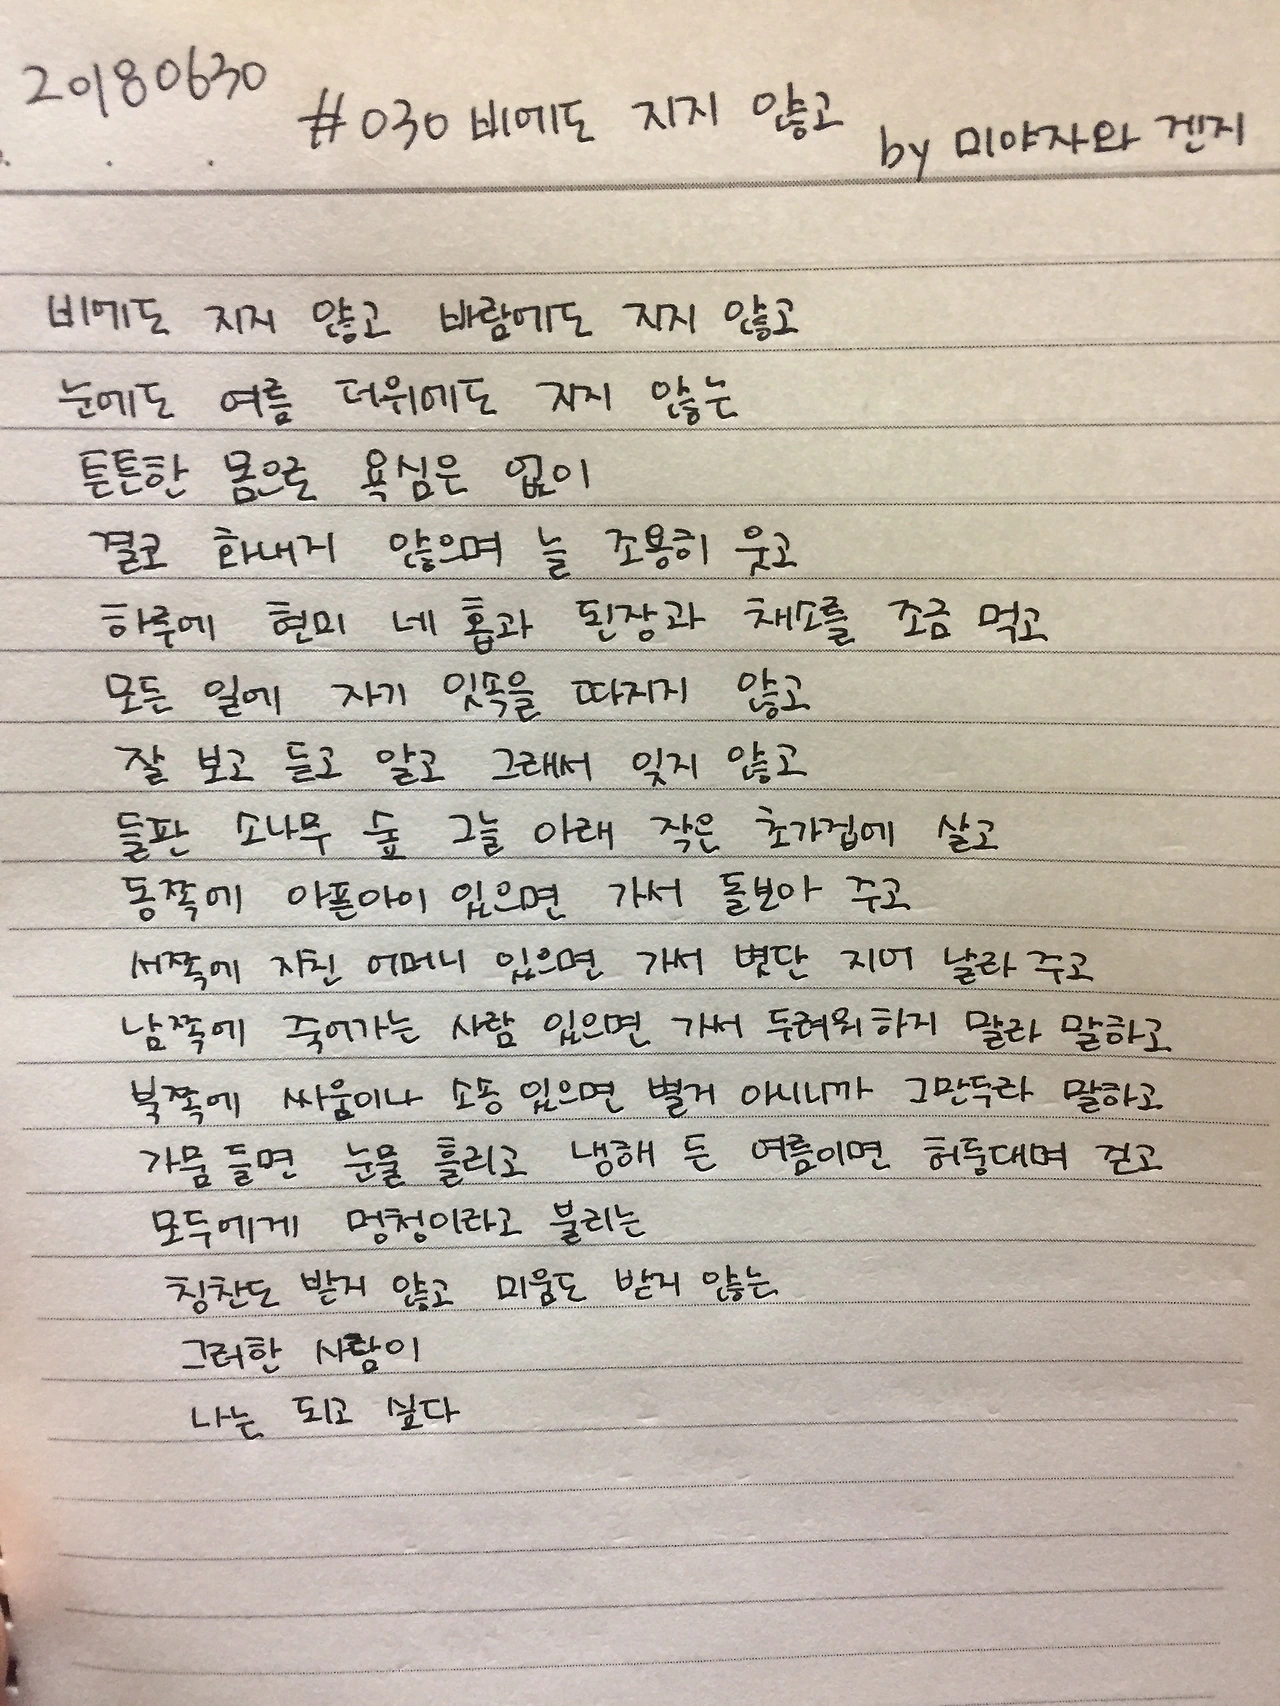 20180630
#030 비에도 지지 않고
by 미야자와 겐지
비에도 지지 않고 바람에도 지지 않고
눈에도 여름 더위에도 지지 않는
튼튼한 몸으로 욕심은 없이
결코 화내지 않으며 늘 조용히 웃고
하루에 현미 네 홉과 된장과 채소를 조금 먹고
모든 일에 자기 잇속을 따지지 않고
잘 보고 듣고 알고 그래서 잊지 않고
들판 소나무 숲 그늘 아래 작은 초가집에 살고
동쪽에 아픈아이 있으면 가서 돌보아 주고
서쪽에 지친 어머니 있으면 가서 볏단 지어 날라 주고
남쪽에 죽어가는 사람 있으면 가서 두려워하지 말라 말하고
북쪽에 싸움이나 소송 있으면 별거 아니니까 그만두라 말하고
가뭄 들면 눈물 흘리고 냉해 든 여름이면 허둥대며 걷고
모두에게 멍청이라고 불리는
칭찬도 받지 않고 미움도 받지 않는
그러한 사람이
나는 되고 싶다